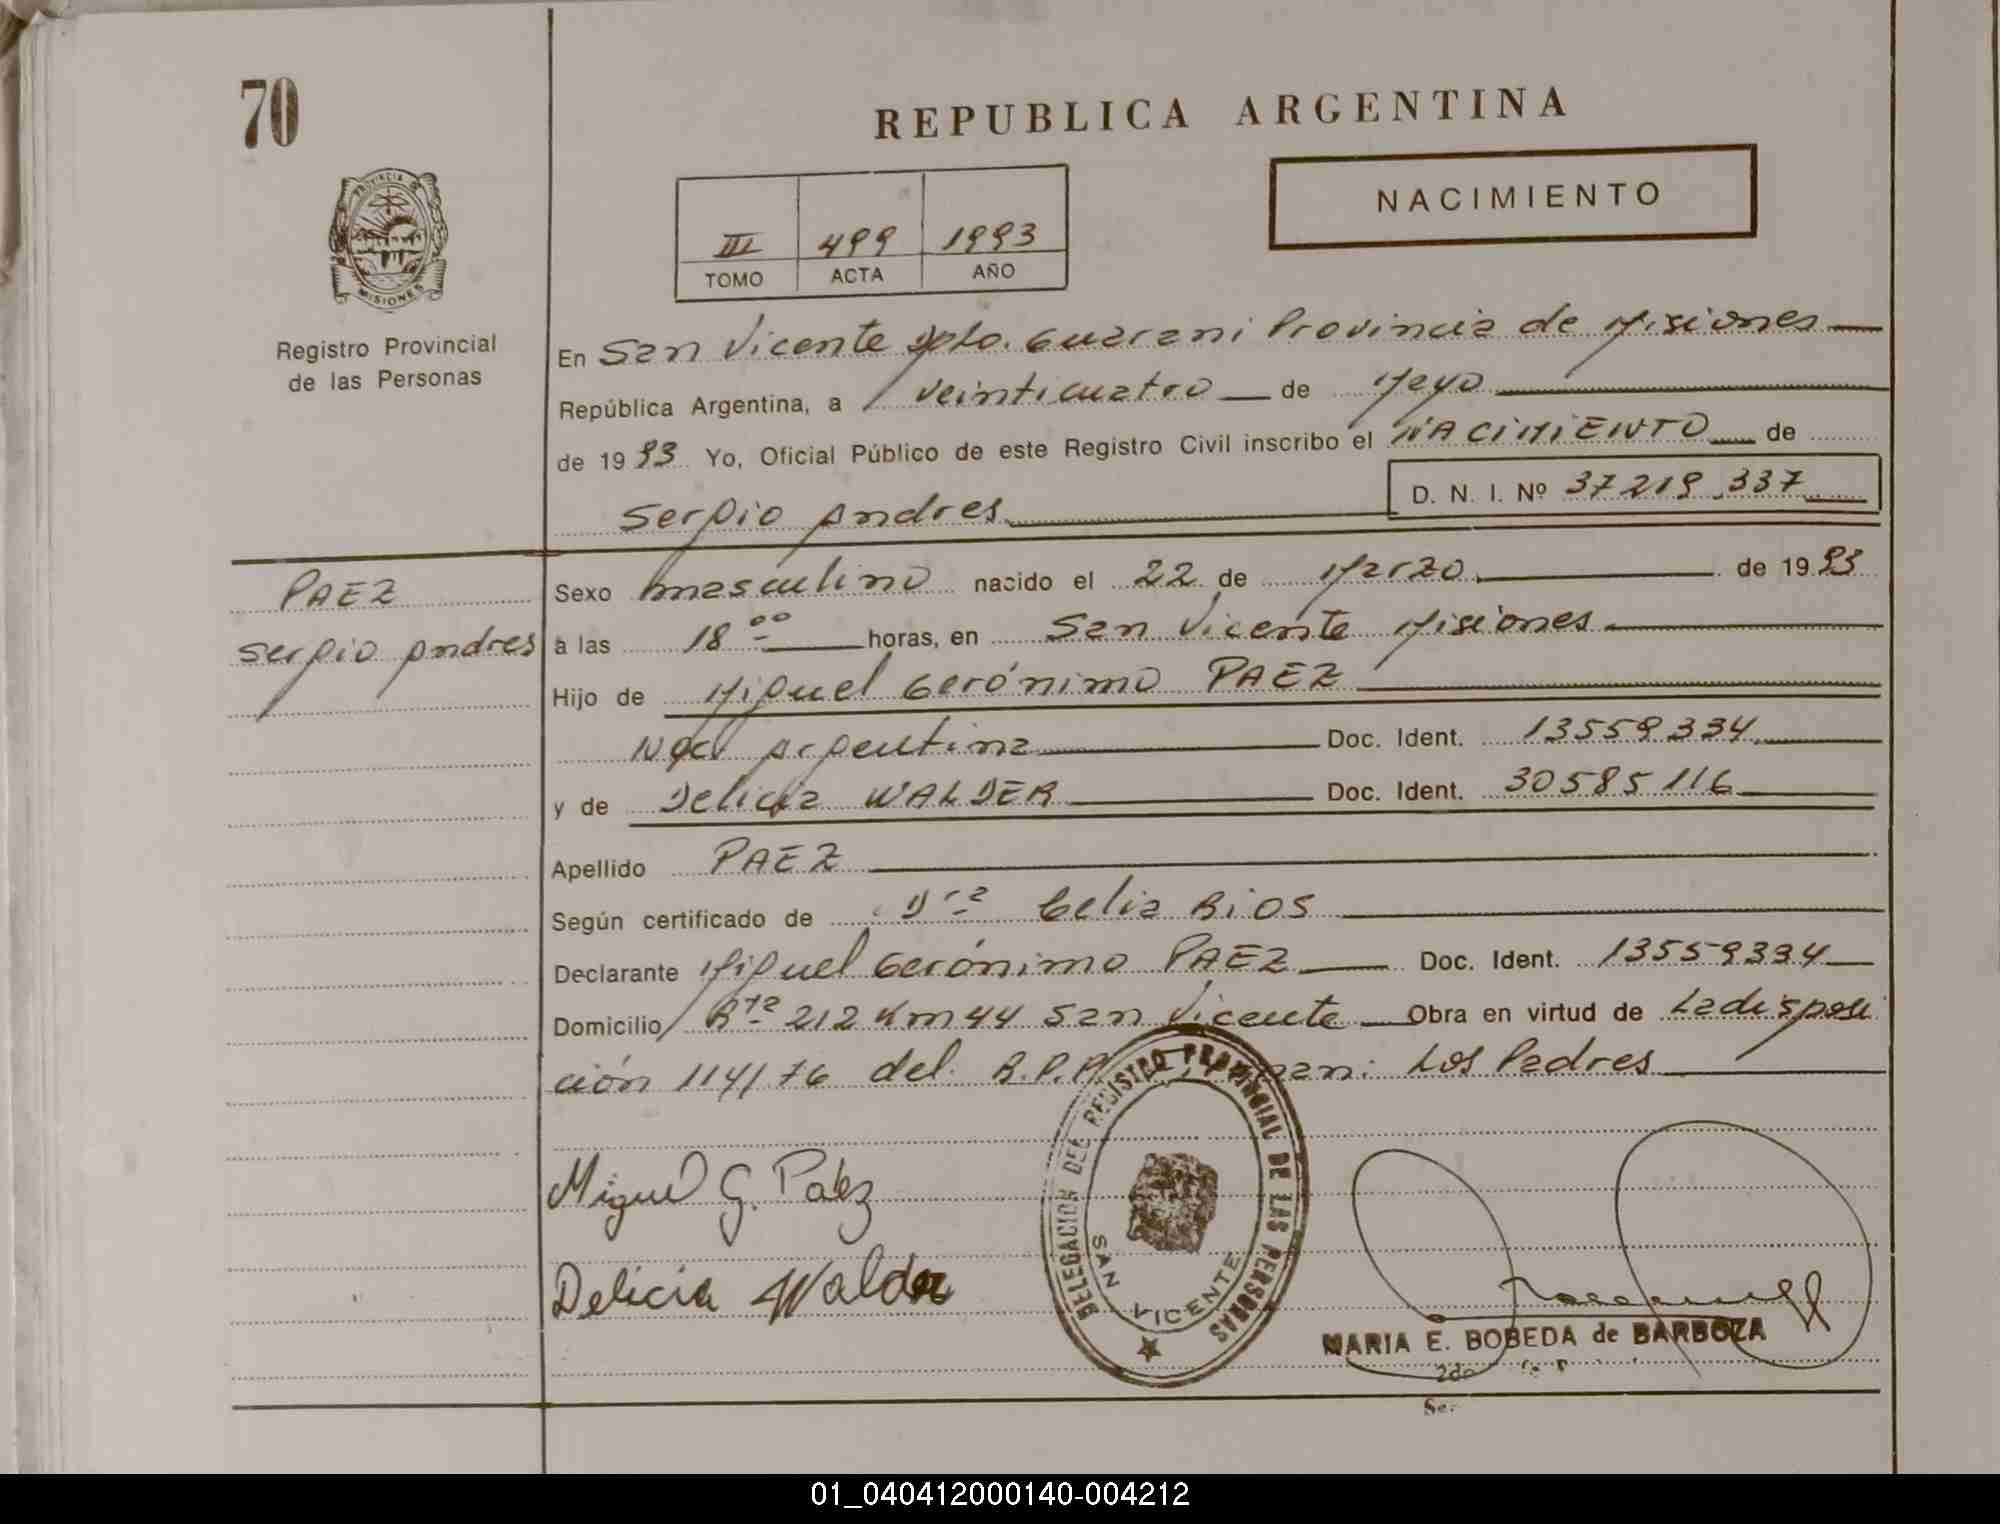 70
REPUBLICA ARGENTINA
NACIMIENTO
III 499 1993
TOMO ACTA AÑO
PROVINCIA DE MISIONES
Registro Provincial
de las Personas
En San Vicente Dpto. Guarani Provincia de Misiones
República Argentina, a veinticuatro de Mayo
de 1993 Yo, Oficial Público de este Registro Civil inscribo el NACIMIENTO de
D. N. I. Nº 37219.337
Sergio Andres
PAEZ
Sergio Andres
Sexo masculino nacido el 22 de Marzo de 1993
a las 18 00 horas, en San Vicente Misiones
Hijo de Miguel Gerónimo PAEZ
Nac Argentina Doc. Ident. 13559334
y de Delicia WALDER Doc. Ident. 30585116
Apellido PAEZ
Según certificado de Dra Celia Rios
Declarante Miguel Gerónimo PAEZ Doc. Ident. 13559334
Domicilio Rta 212 Km 44 San Vicente Obra en virtud de La disposi
ción 114/76 del R.P.P. Los Padres
Miguel G. Paez
Delicia Walder
DELEGACION DEL REGISTRO PROVINCIAL DE LAS PERSONAS
SAN VICENTE
MARIA E. BOBEDA de BARBOZA
2do
01_040412000140-004212